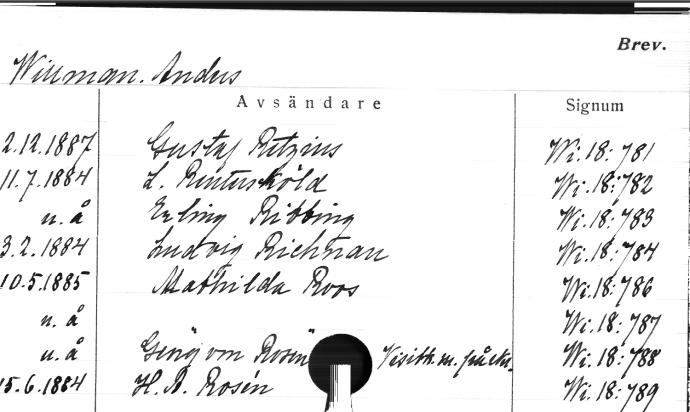 Brev.
Willman. Anders
Avsändare Signum
2.12.1887 Gustaf Retzius Wi.18:781
11.7.1884 L. Reuterskiöld Wi.18:782
u. å Erling Ribbing Wi.18:783
3.2.1884 Ludvig Richnau Wi.18:784
10.5.1885 Mathilda Roos Wi.18:786
u. å Wi.18:787
u. å von Rosén Wi.18:788
15.6.1884 H. R. Rosén Wi.18:789